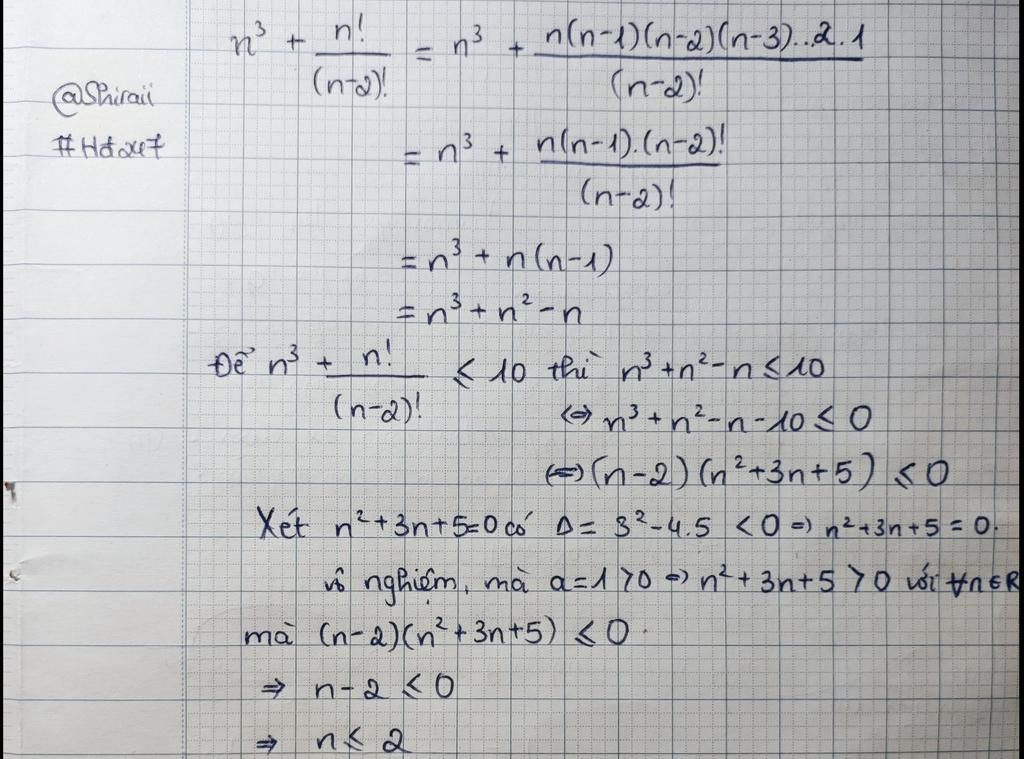 n³ + n!/(n-2)! = n³ + n(n-1)(n-2)(n-3)..2.1/(n-2)!
@Shiraii
#Hđxt7
= n³ + n(n-1).(n-2)!/(n-2)!
= n³ + n(n-1)
= n³ + n² - n
Để n³ + n!/(n-2)! ≤ 10 thì n³+n²-n ≤ 10
⇔ n³+n²-n-10 ≤ 0
⇔ (n-2)(n²+3n+5) ≤ 0
Xét n²+3n+5=0 có Δ = 3²-4.5 < 0 ⇒ n²+3n+5 = 0.
vô nghiệm, mà a=1>0 ⇒ n²+3n+5 > 0 với ∀n∈R
mà (n-2)(n²+3n+5) ≤ 0.
⇒ n-2 ≤ 0
⇒ n ≤ 2